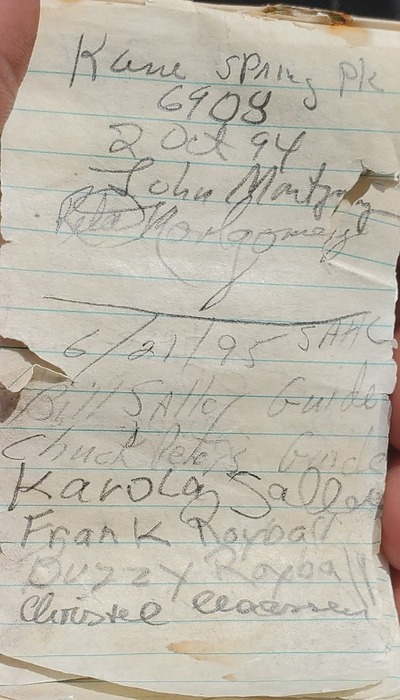 Kane Spring Pk
6908
2 Oct 94
John Montgomery
Rita Montgomery
6/21/95 SAHC
Bill SAlley Guide
Chuck Peters Guide
Karola Salley
Frank Roybal
Buzzy Roybal
Christel Claassen